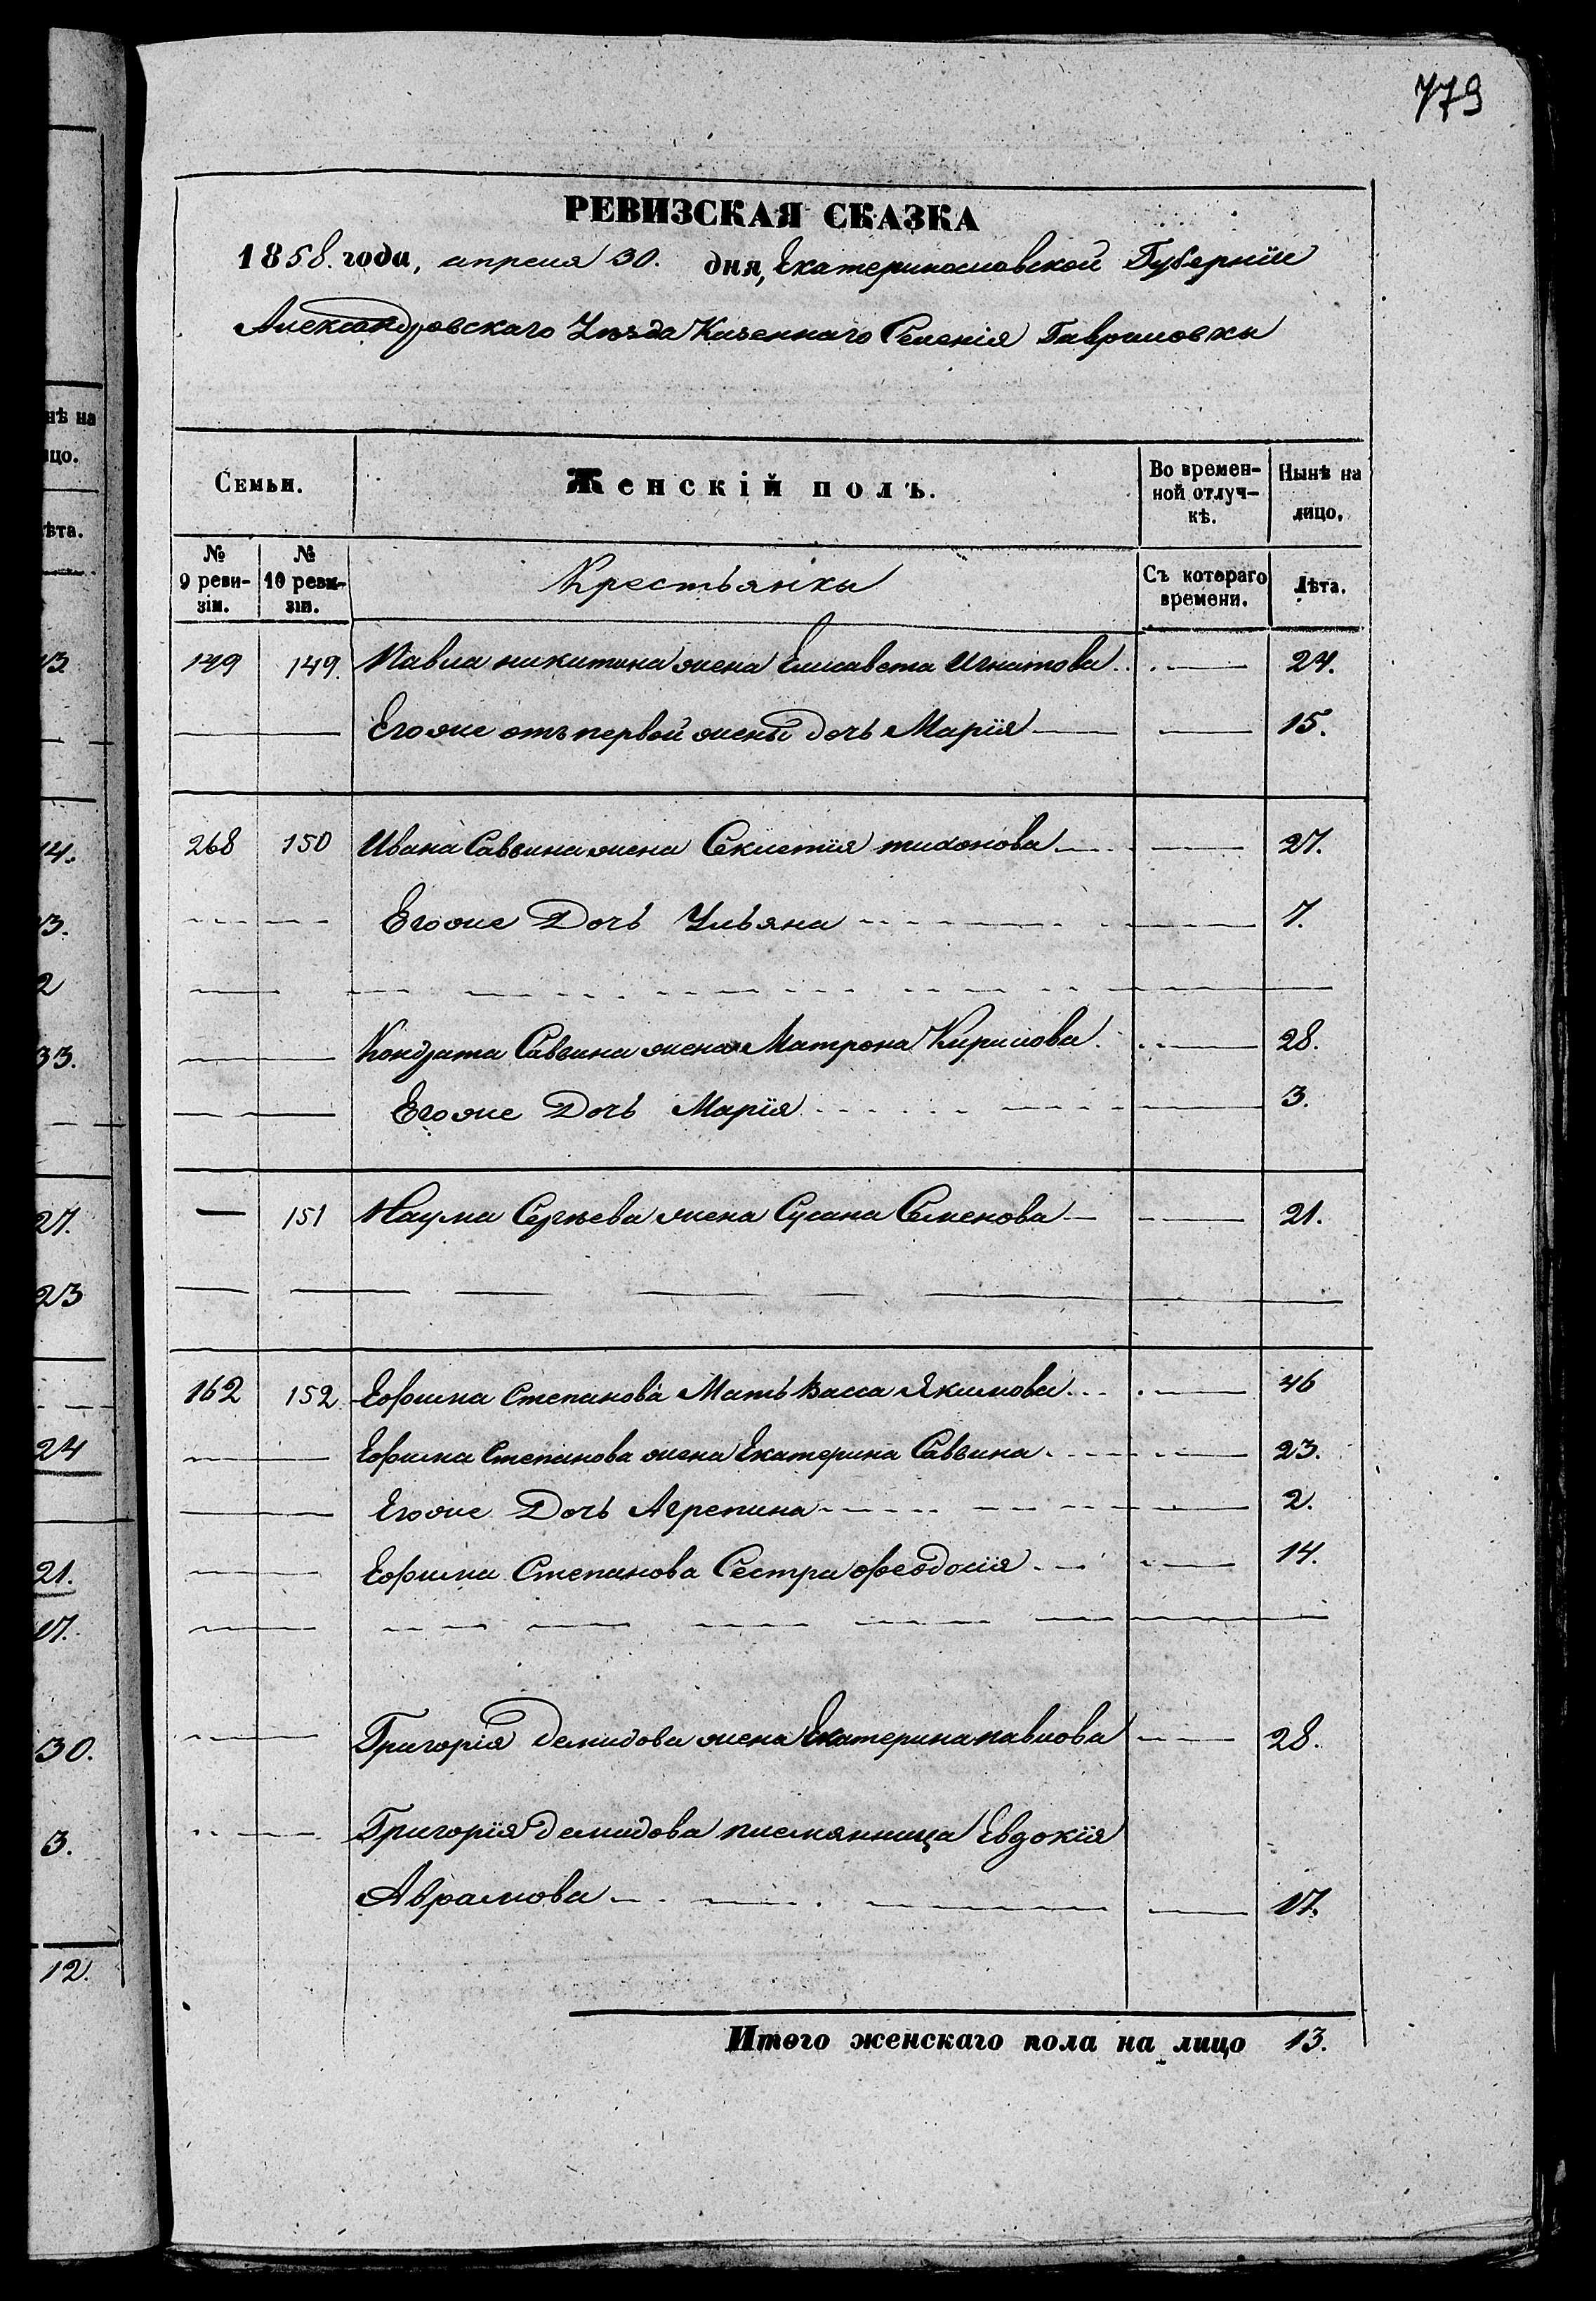 779
РЕВИЗСКАЯ СКАЗКА
1858. года, апреля 30. дня, Екатеринославской Губерніи
Александровскаго Уѣзда Казеннаго Селенія Гавриловки
нѣ на
цо.
ѣта.
13
14.
13.
2
33.
27.
23
24
21.
17.
30.
3.
12.
Семьи. Женскій полъ. Во времен- Нынѣ на
ной отлуч- лицо.
кѣ.
№ № Крестьянки Съ котораго Лѣта.
9 реви- 10 реви- времени.
зіи. зіи.
149 149. Павла никитина жена Елисавета Игнатова 24.
Его же отъ первой жены дочь Марія 15.
268 150 Ивана Саввина жена тихонова 27.
Его же Дочь Ульяна 7.
Кондрата Саввина жена Матрона Кирилова 28.
Его же Дочь Марія 3.
— 151 Наума Сергѣева жена Сусана Семенова 21.
162 152 Ефима Степанова Мать Васса Якимова 46
Ефима Степанова жена Екатерина Саввина 23.
Его же Дочь Агрепина 2.
Ефима Степанова Сестра Феодосія 14.
Григорія Демидова жена Екатерина павлова 28.
Григорія Демидова племянница Евдокія
Аврамова 17.
Итого женскаго пола на лицо 13.